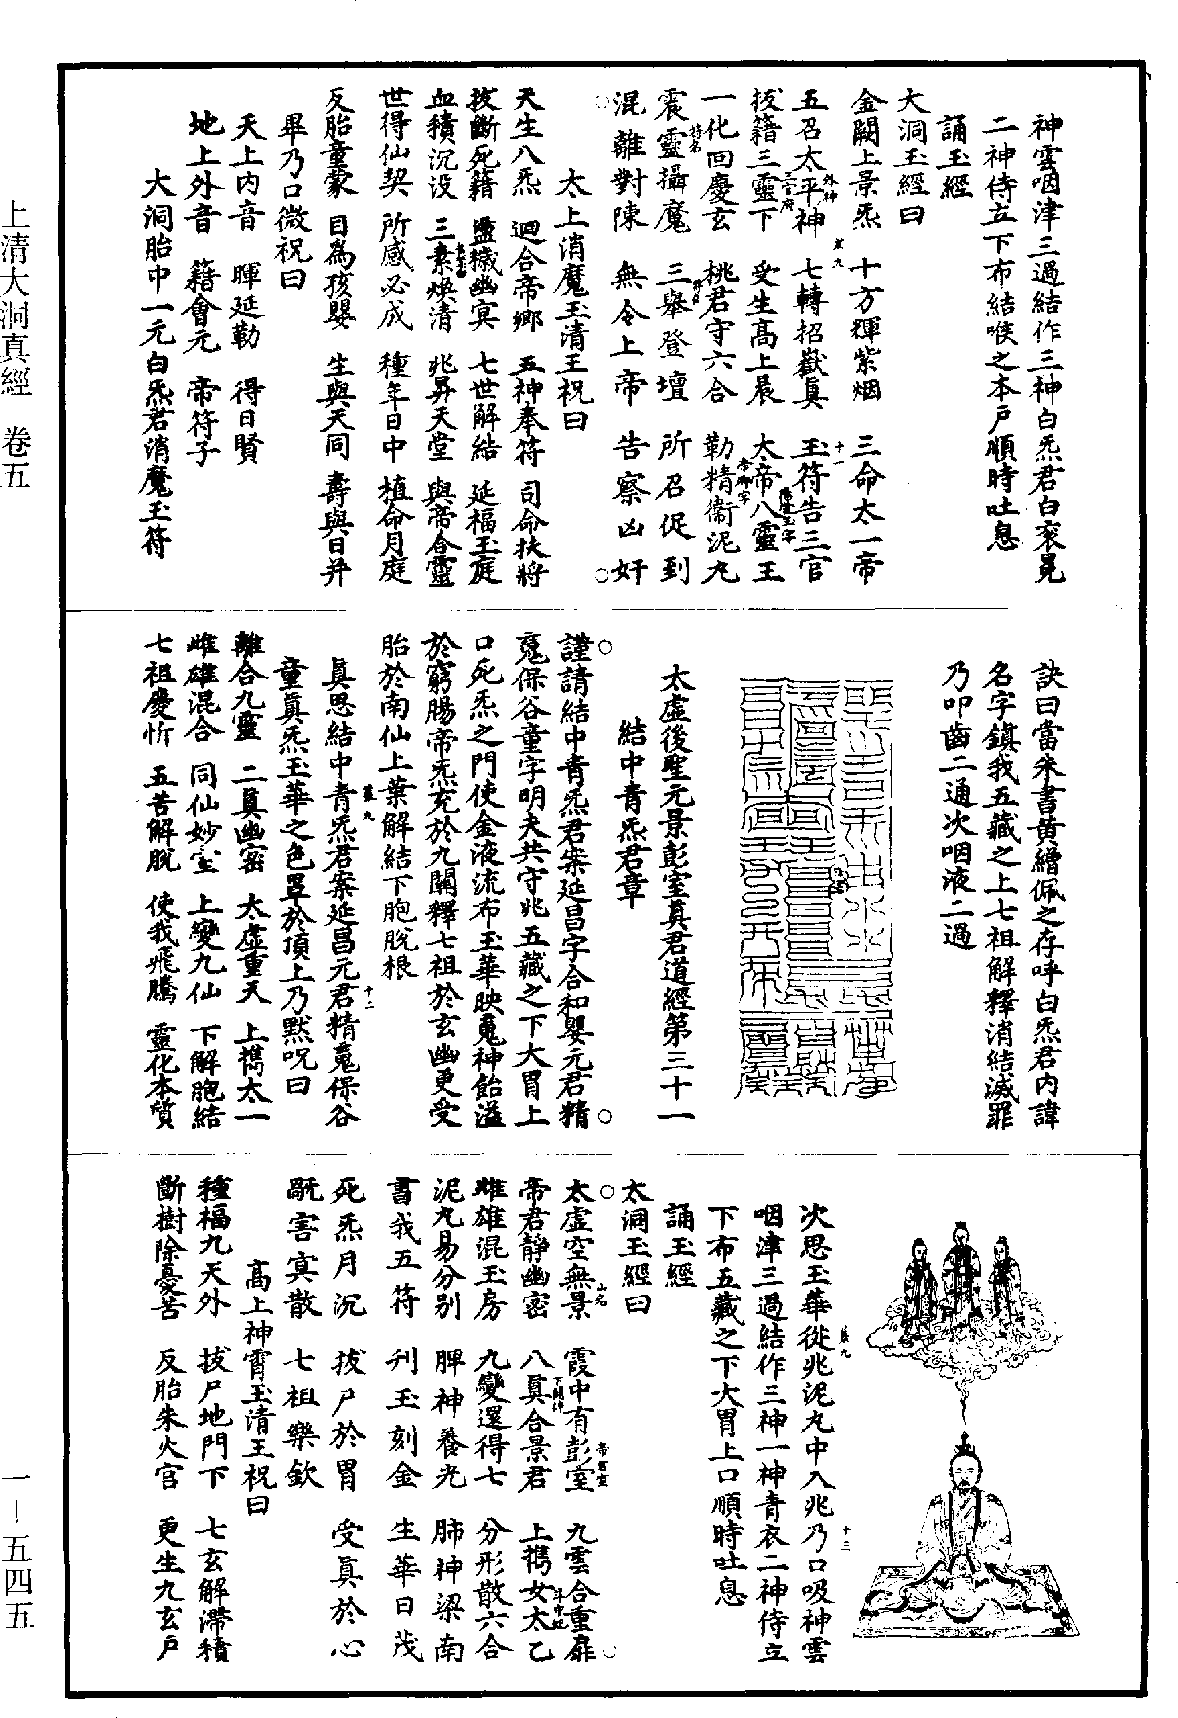 神雲咽津三過結作三神白炁君白衮冕
二神侍立下布結喉之本戶順時吐息
誦玉經
大洞玉經曰
金闕上景炁　十方輝紫烟　三命太一帝
五召太平神　七轉招嶽真　玉符告三官
拔籍三靈下　受生高上晨　太帝八靈王
一化回慶玄　桃君守六合　勒精衞泥丸
震靈攝魔　三舉登壇　所召促到
混離對陳　無令上帝　告察凶奸
太上消魔玉清王祝曰
天生八炁　迴合帝鄉　五神奉符　司命扶將
拔斷死籍　盪穢幽冥　七世解結　延福玉庭
血積沉没　三素煥清　兆昇天堂　與帝合靈
世得仙契　所感必成　種年日中　植命月庭
反胎童蒙　目為孩嬰　生與天同　壽與日并
畢乃口微祝曰
天上內音　暉延勒　得日賢
地上外音　籍會元　帝符子
大洞胎中一元白炁君消魔玉符
訣曰當朱書黃繒佩之存呼白炁君內諱
名字鎮我五藏之上七祖解釋消結滅罪
乃叩齒二通次咽液二過
太虛後聖元景彭室真君道經第三十一
結中青炁君章
謹請結中青炁君案延昌字合和嬰元君精
䰟保谷童字明夫共守兆五藏之下大胃上
口死炁之門使金液流布玉華映䰟神飴溢
於窮腸帝炁充於九關釋七祖於玄幽更受
胎於南仙上葉解結下胞脫根
真思結中青炁君案延昌元君精䰟保谷
童真炁玉華之色罩於頂上乃默呪曰
離合九靈　二真幽密　太虛重天　上攜太一
雌雄混合　同仙妙室　上變九仙　下解胞結
七祖慶忻　五苦解脫　使我飛騰　靈化本質
次思玉華從兆泥丸中入兆乃口吸神雲
咽津三過結作三神一神青衣二神侍立
下布五藏之下大胃上口順時吐息
誦玉經
太洞玉經曰
太虛空無景　霞中有彭室　九雲合重扉
帝君靜幽密　八真合景君　上攜女太乙
雌雄混玉房　九變還得七　分形散六合
泥丸易分別　脾神養光　肺神梁南
書我五符　刋玉刻金　生華日茂
死炁月沉　拔尸於胃　受真於心
翫害寘散　七祖樂欽
高上神霄玉清王祝曰
種福九天外　拔尸地門下　七玄解滯積
斷樹除憂苦　反胎朱火宮　更生九玄戶
上清大洞真經　卷五
一—五四五